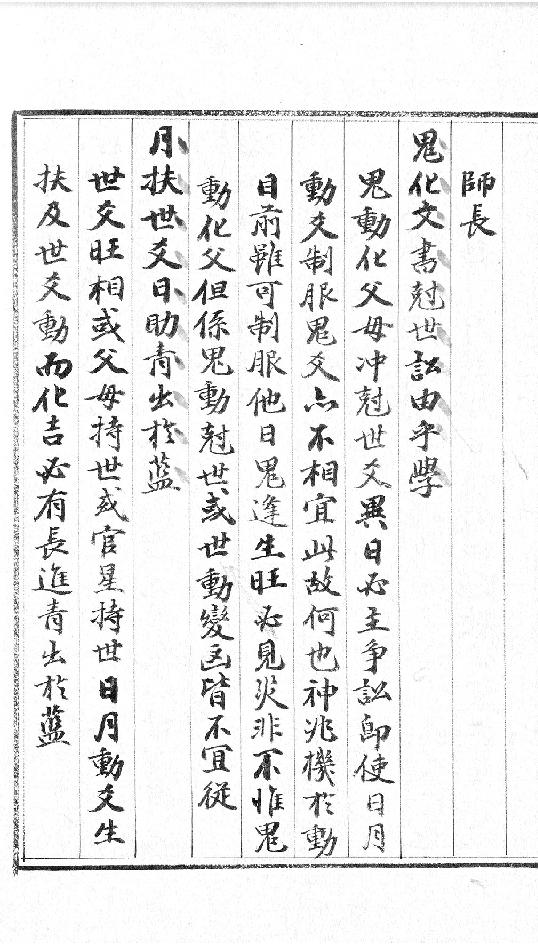 師長
鬼化文書尅世訟由乎學
鬼動化父母冲尅世爻異日必主争訟即使日月
動爻制服鬼爻亦不相宜此故何也神兆機於動
日前雖可制服他日鬼逢生旺必見災非不惟鬼
動化父但係鬼動尅世或世動變凶皆不宜從
月扶世爻日助青出於藍
世爻旺相或父母持世或官星持世日月動爻生
扶及世爻動而化吉必有長進青出於藍